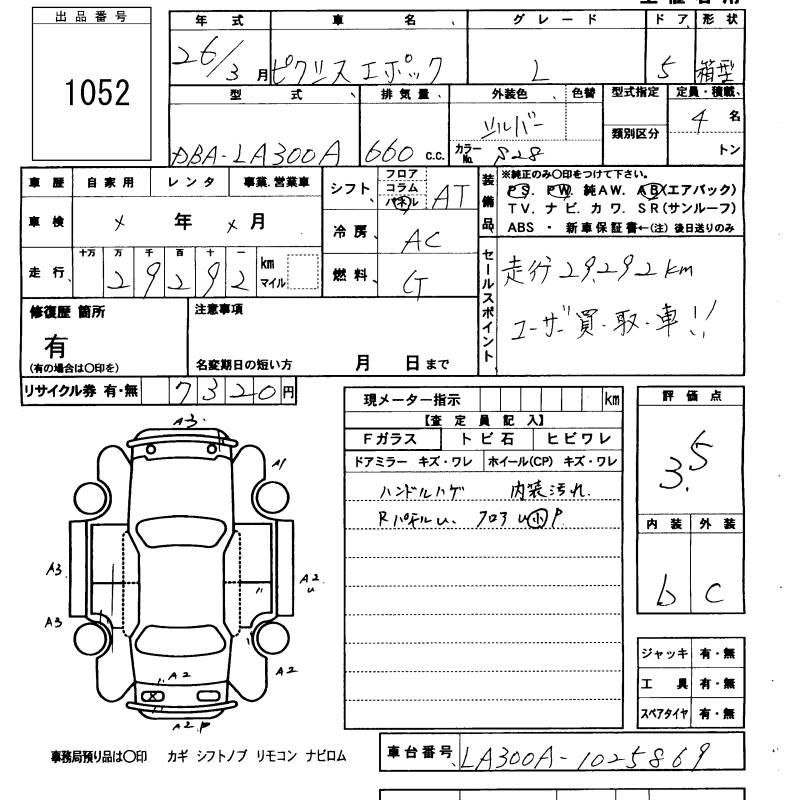 出品番号
1052
年式 車名 グレード ドア 形状
26/3月 ピクシスエポック L 5 箱型
型式 排気量 外装色 色替 型式指定 定員・積載
類別区分
DBA-LA300A 660 c.c. シルバー 4名
カラーNo. S28 トン
車歴 自家用 レンタ 事業.営業車
車検 × 年 × 月
走行 十万 万 千 百 十 一
29292 km
マイル
シフト フロア コラム パネル AT
冷房 AC
燃料 G
装備品
※純正のみ○印をつけて下さい。
PS. PW. 純AW. AB(エアバック)
TV. ナビ. カワ. SR(サンルーフ)
ABS ・ 新車保証書←(注) 後日送りのみ
セールスポイント
走行29,292km
ユーザー買・取・車!!
修復歴 箇所
有
(有の場合は○印を)
注意事項
名変期日の短い方 月 日まで
リサイクル券 有・無 7320円
現メーター指示 km
【査定員記入】
Fガラス トビ石 ヒビワレ
ドアミラー キズ・ワレ ホイール(CP) キズ・ワレ
ハンドルハゲ 内装汚れ.
RパネルU. フロアU小P
評価点
3.5
内装 外装
b c
A3.
A1
A3
A2
U
A3
A2
A2
A2.P
ジャッキ 有・無
工具 有・無
スペアタイヤ 有・無
事務局預り品は○印 カギ シフトノブ リモコン ナビロム
車台番号 LA300A-1025869